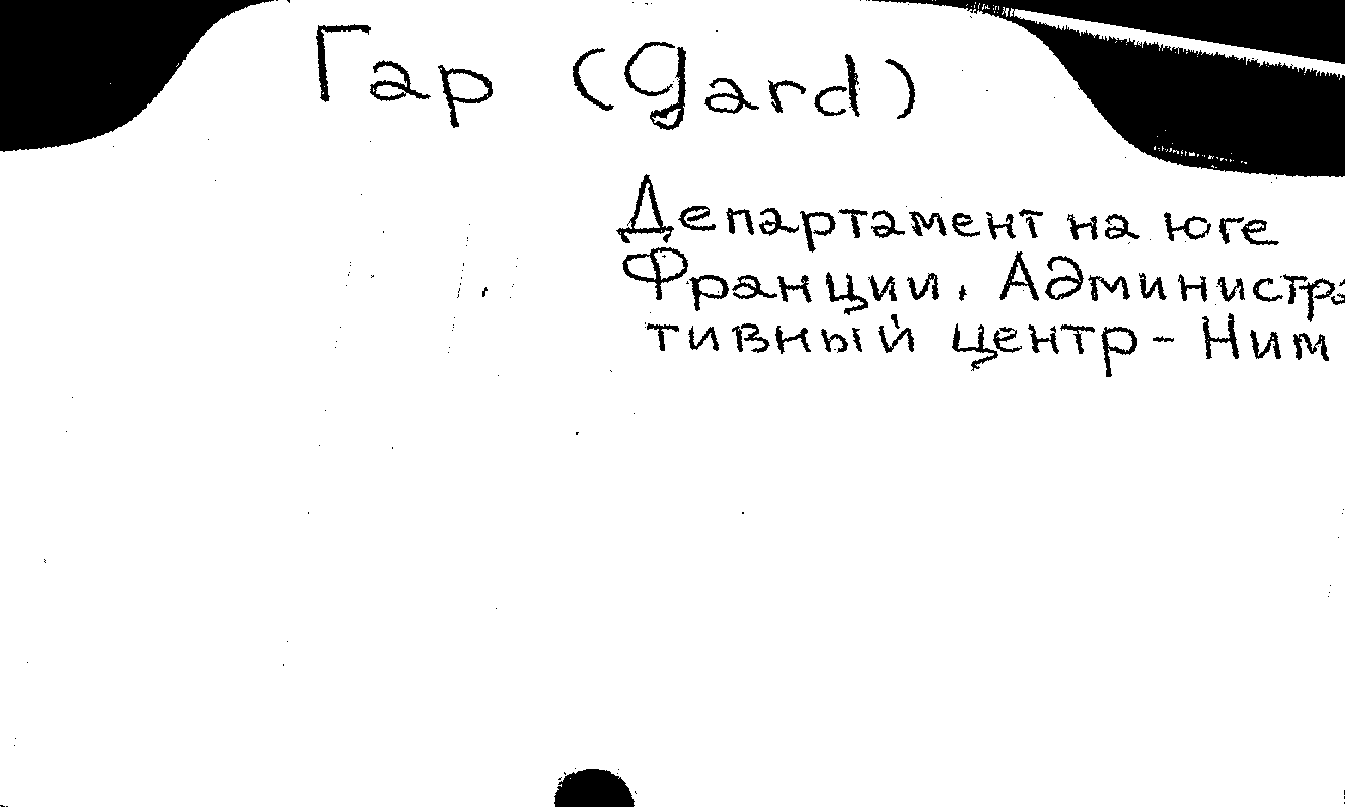 Гар (gard)
Департамент на юге
Франции. Администра
тивный центр - Ним